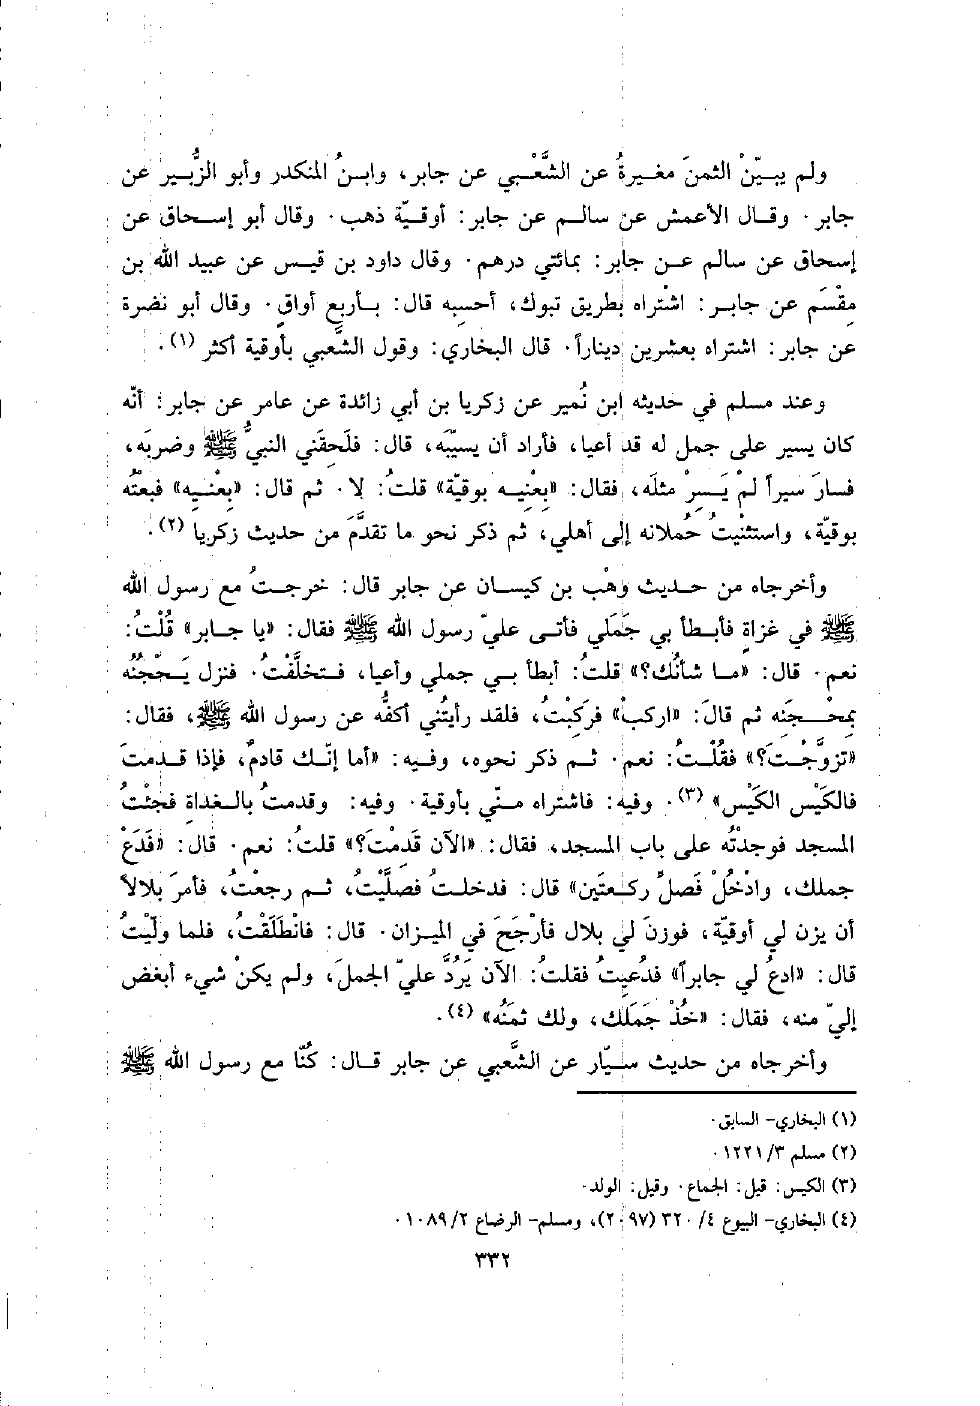 ولم يبيّنْ الثمنَ مغيرةُ عن الشَّعْبي عن جابر، وابنُ المنكدر وأبو الزُّبير عن
جابر. وقال الأعمش عن سالم عن جابر: أوقيّة ذهب. وقال أبو إسحاق عن
إسحاق عن سالم عن جابر: بمائتي درهم. وقال داود بن قيس عن عبيد الله بن
مِقْسَم عن جابر: اشْتراه بطريق تبوك، أحسبه قال: بأربعِ أواقٍ. وقال أبو نضرة
عن جابر: اشتراه بعشرين ديناراً. قال البخاري: وقول الشَّعبي بأوقية أكثر (١).
وعند مسلم في حديثه ابن نُمير عن زكريا بن أبي زائدة عن عامر عن جابر: أنّه
كان يسير على جمل له قد أعيا، فأراد أن يسيّبَه، قال: فلَحِقَني النبيُّ ﷺ وضربَه،
فسارَ سيراً لمْ يَسِرْ مثلَه، فقال: «بِعْنِيه بوقيّة» قلتُ: لا. ثم قال: «بِعْنيه» فبعتُه
بوقيّة، واستثنيتُ حُملانه إلى أهلي، ثم ذكر نحو ما تقدَّمَ من حديث زكريا (٢).
وأخرجاه من حديث وهْب بن كيسان عن جابر قال: خرجتُ مع رسول الله
ﷺ في غزاةٍ فأبطأ بي جَمَلي فأتى عليّ رسول الله ﷺ فقال: «يا جابر» قُلْتُ:
نعم. قال: «ما شأنُك؟» قلتُ: أبطأ بي جملي وأعيا، فتخلَّفْتُ. فنزل يَحْجُنُه
بِمحْجَنِه ثم قالَ: «اركبْ» فركِبْتُ، فلقد رأيتُني أكفُّه عن رسول الله ﷺ، فقال:
«تزوَّجْتَ؟» فقُلْتُ: نعم. ثم ذكر نحوه، وفيه: «أما إنّك قادمٌ، فإذا قدمتَ
فالكَيْسَ الكَيْسَ» (٣). وفيه: فاشتراه منّي بأوقية. وفيه: وقدمتُ بالغداة فجِئْتُ
المسجد فوجدْتُه على باب المسجد، فقال: «الآن قَدِمْتَ؟» قلتُ: نعم. قال: «فَدَعْ
جملك، وادْخُلْ فَصَلِّ ركعتَين» قال: فدخلتُ فصَلَّيْتُ، ثم رجعْتُ، فأمرَ بلالاً
أن يزن لي أوقيّة، فوزنَ لي بلال فأرْجَحَ في الميزان. قال: فانْطَلَقْتُ، فلما ولّيْتُ
قال: «ادعُ لي جابراً» فدُعيتُ فقلتُ: الآن يَرُدُّ عليّ الجملَ، ولم يكنْ شيء أبغض
إليّ منه، فقال: «خُذْ جَمَلَك، ولك ثمنُه» (٤).
وأخرجاه من حديث سيّار عن الشَّعبي عن جابر قال: كُنّا مع رسول الله ﷺ
(١) البخاري- السابق.
(٢) مسلم ٣/ ١٢٢١.
(٣) الكيس: قيل: الجماع. وقيل: الولد.
(٤) البخاري- البيوع ٤/ ٣٢٠ (٢٠٩٧)، ومسلم- الرضاع ٢/ ١٠٨٩.
٣٣٢